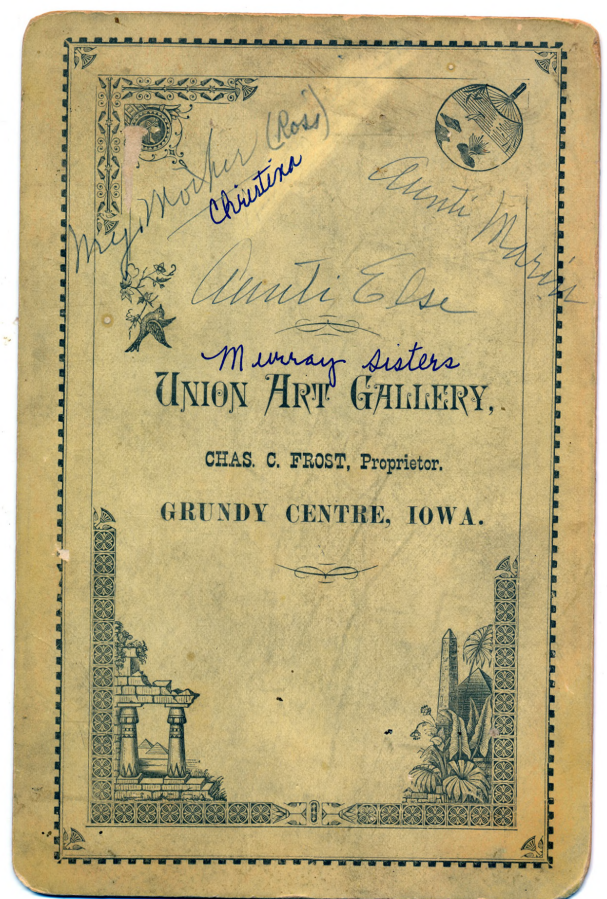 My Mother (Ross)
Christina
Aunti Marin
Aunti Else
Murray Sisters
UNION ART GALLERY,
CHAS. C. FROST, Proprietor.
GRUNDY CENTRE, IOWA.